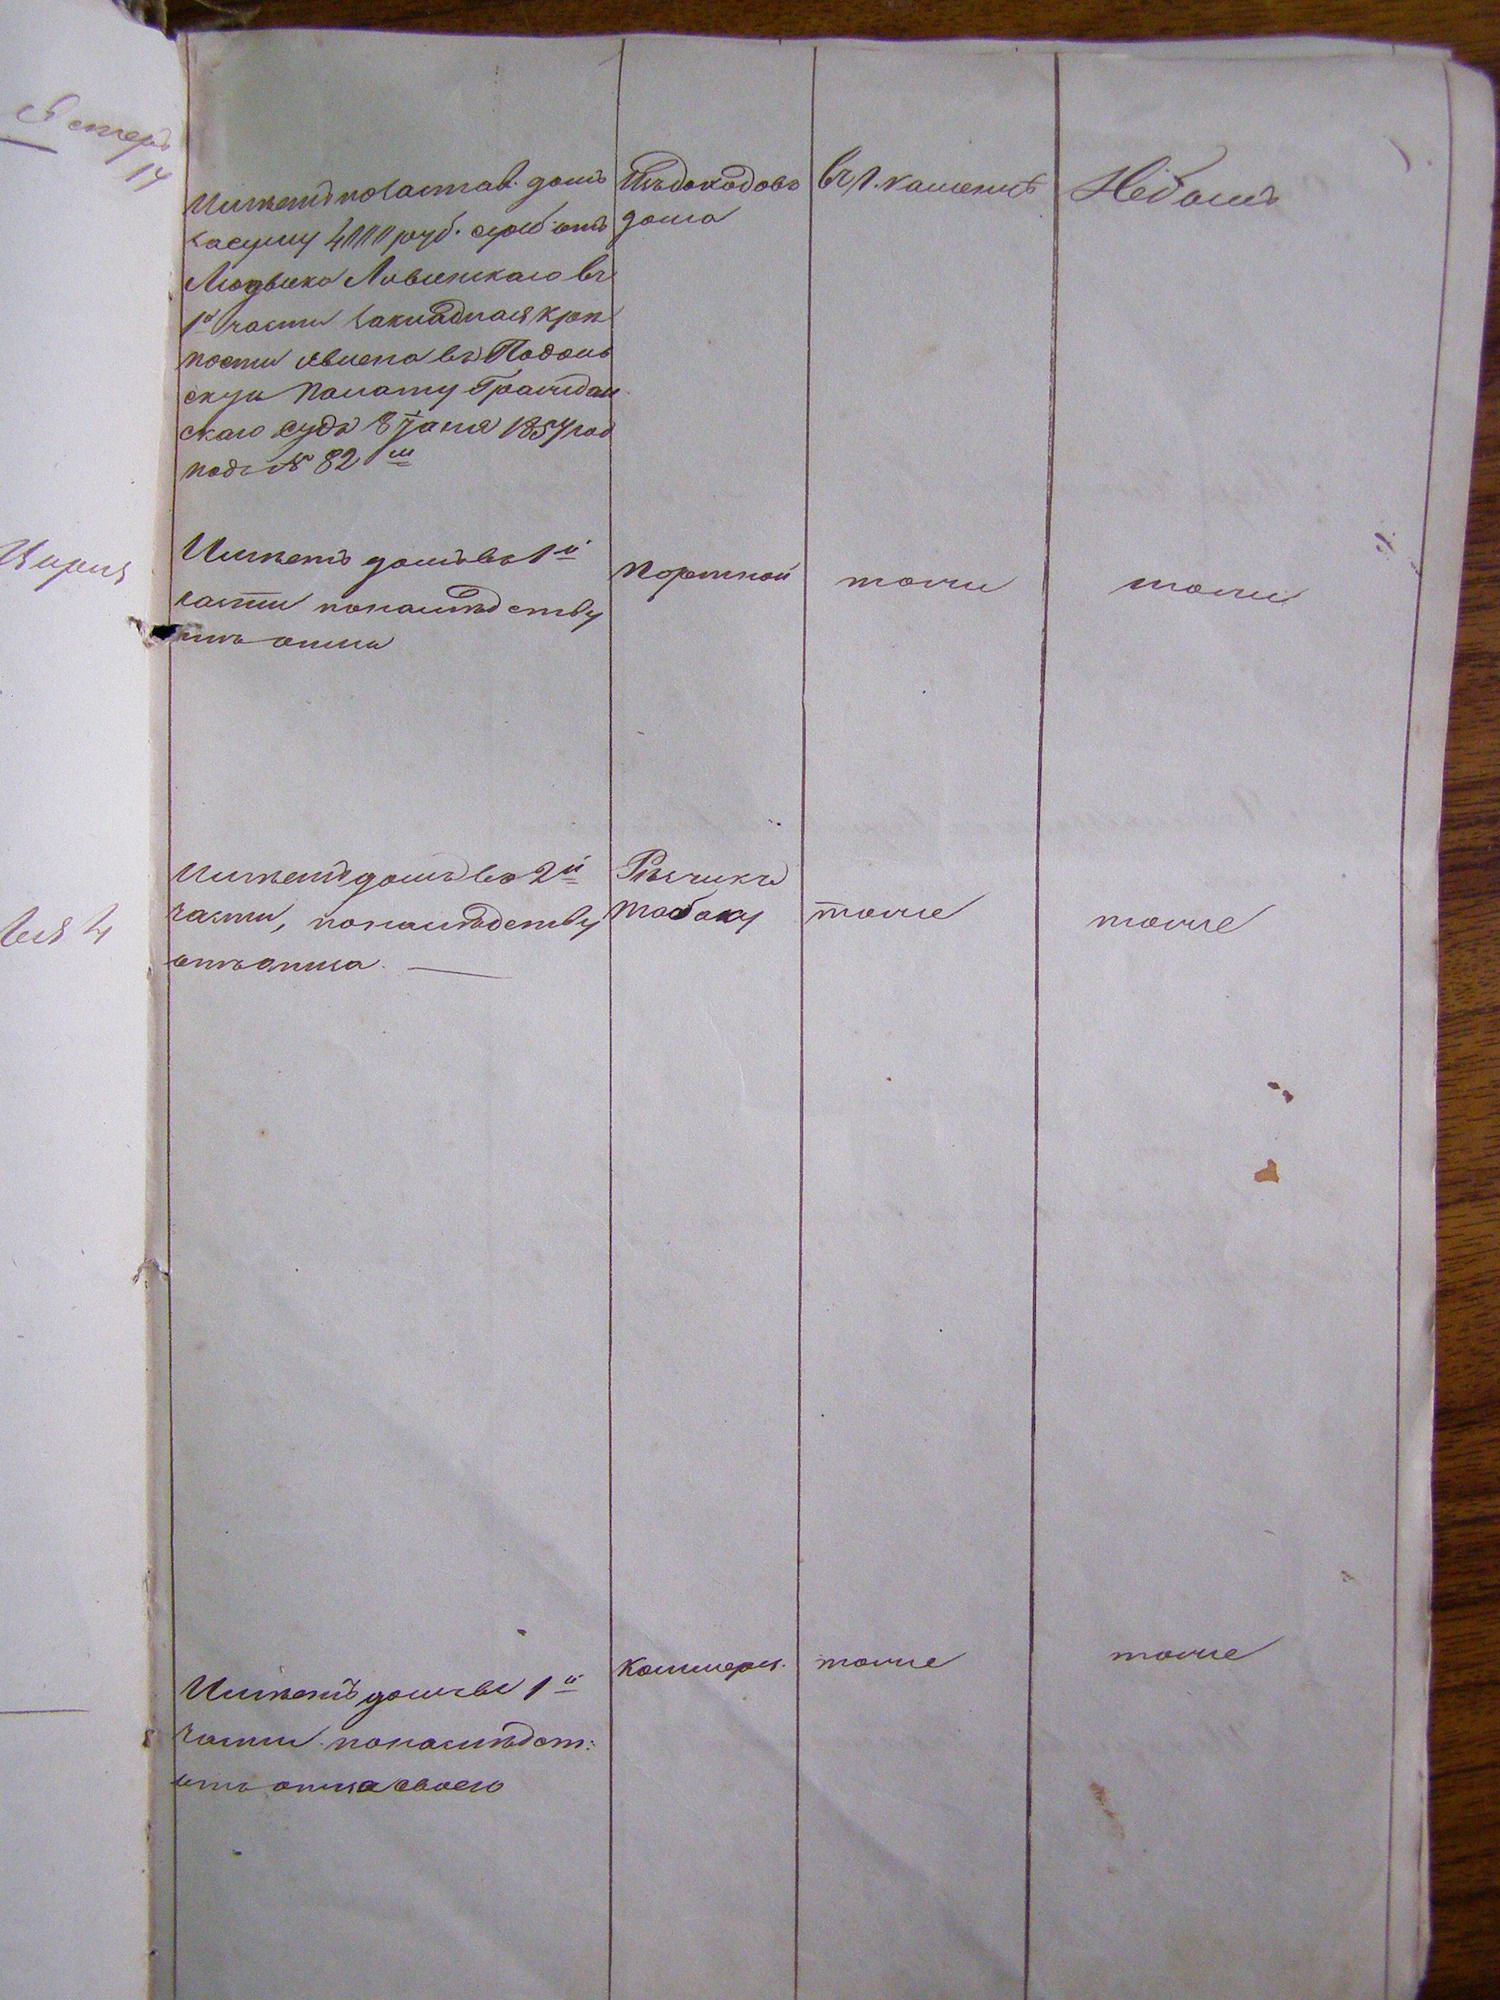 Эстеръ
14
Имѣетъ по застав. домъ
на сумму 4000 руб. сереб. отъ
Людвика Ловинскаго въ
1й части закладная крѣ
пости явлена въ Подоль
скую Палату Граждан
скаго суда 8 Іюня 1857 год
подъ № 82 м
Изъ доходовъ
дома
въ г. Каменцѣ
Небылъ
Цирля
Имѣетъ домъ въ 1й
части по наслѣдству
отъ отца
портной
тоже
тоже
Лея 4
Имѣетъ домъ во 2й
части, по наслѣдству
отъ отца.
Рѣзчикъ
табаку
тоже
тоже
Имѣетъ домъ въ 1й
части по наслѣдст:
отъ отца своего
Коммерц.
тоже
тоже